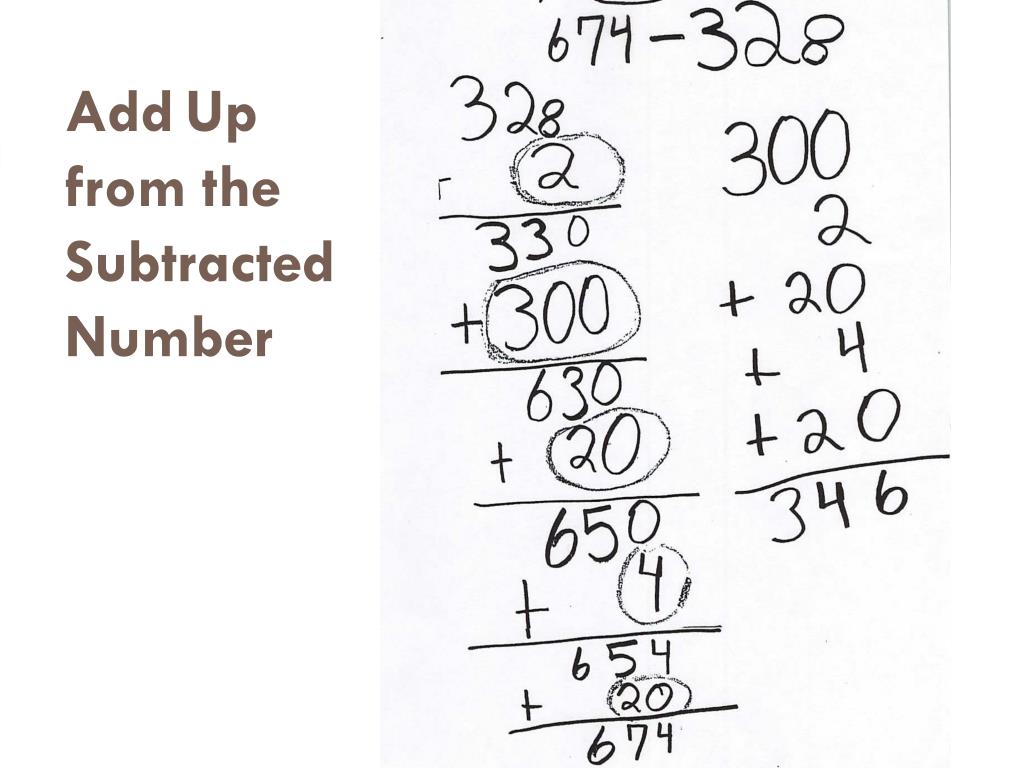 Add Up
from the
Subtracted
Number
674 - 328
328
2
330
+ 300
630
+ 20
650
+ 4
654
+ 20
674
300
2
+ 20
+ 4
+ 20
346